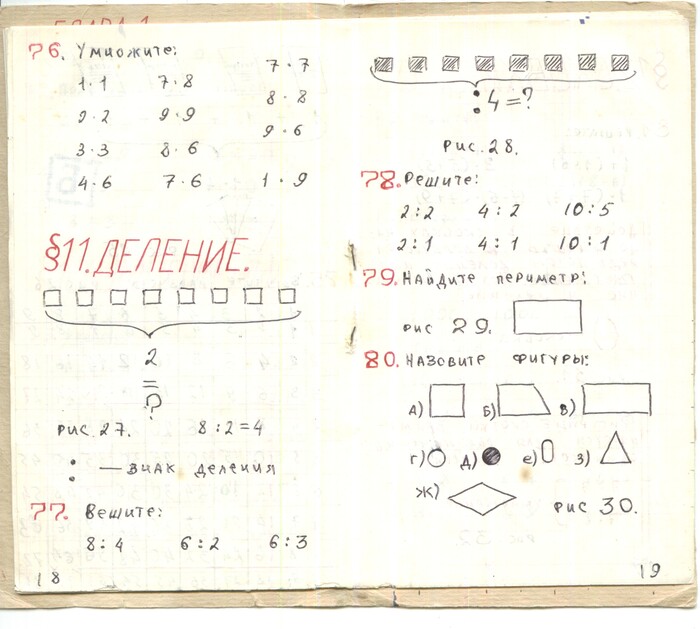 76. Умножите:
1·1 7·8 7·7
2·2 9·9 8·8
3·3 8·6 9·6
4·6 7·6 1·9
§11. ДЕЛЕНИЕ.
2
=
?
рис. 27. 8:2=4
: — знак деления
77. Решите:
8:4 6:2 6:3
18
:4=?
рис. 28.
78. Решите:
2:2 4:2 10:5
2:1 4:1 10:1
79. Найдите периметр:
рис 29.
80. Назовите фигуры:
а) б) в)
г) д) е) з)
ж) рис 30.
19